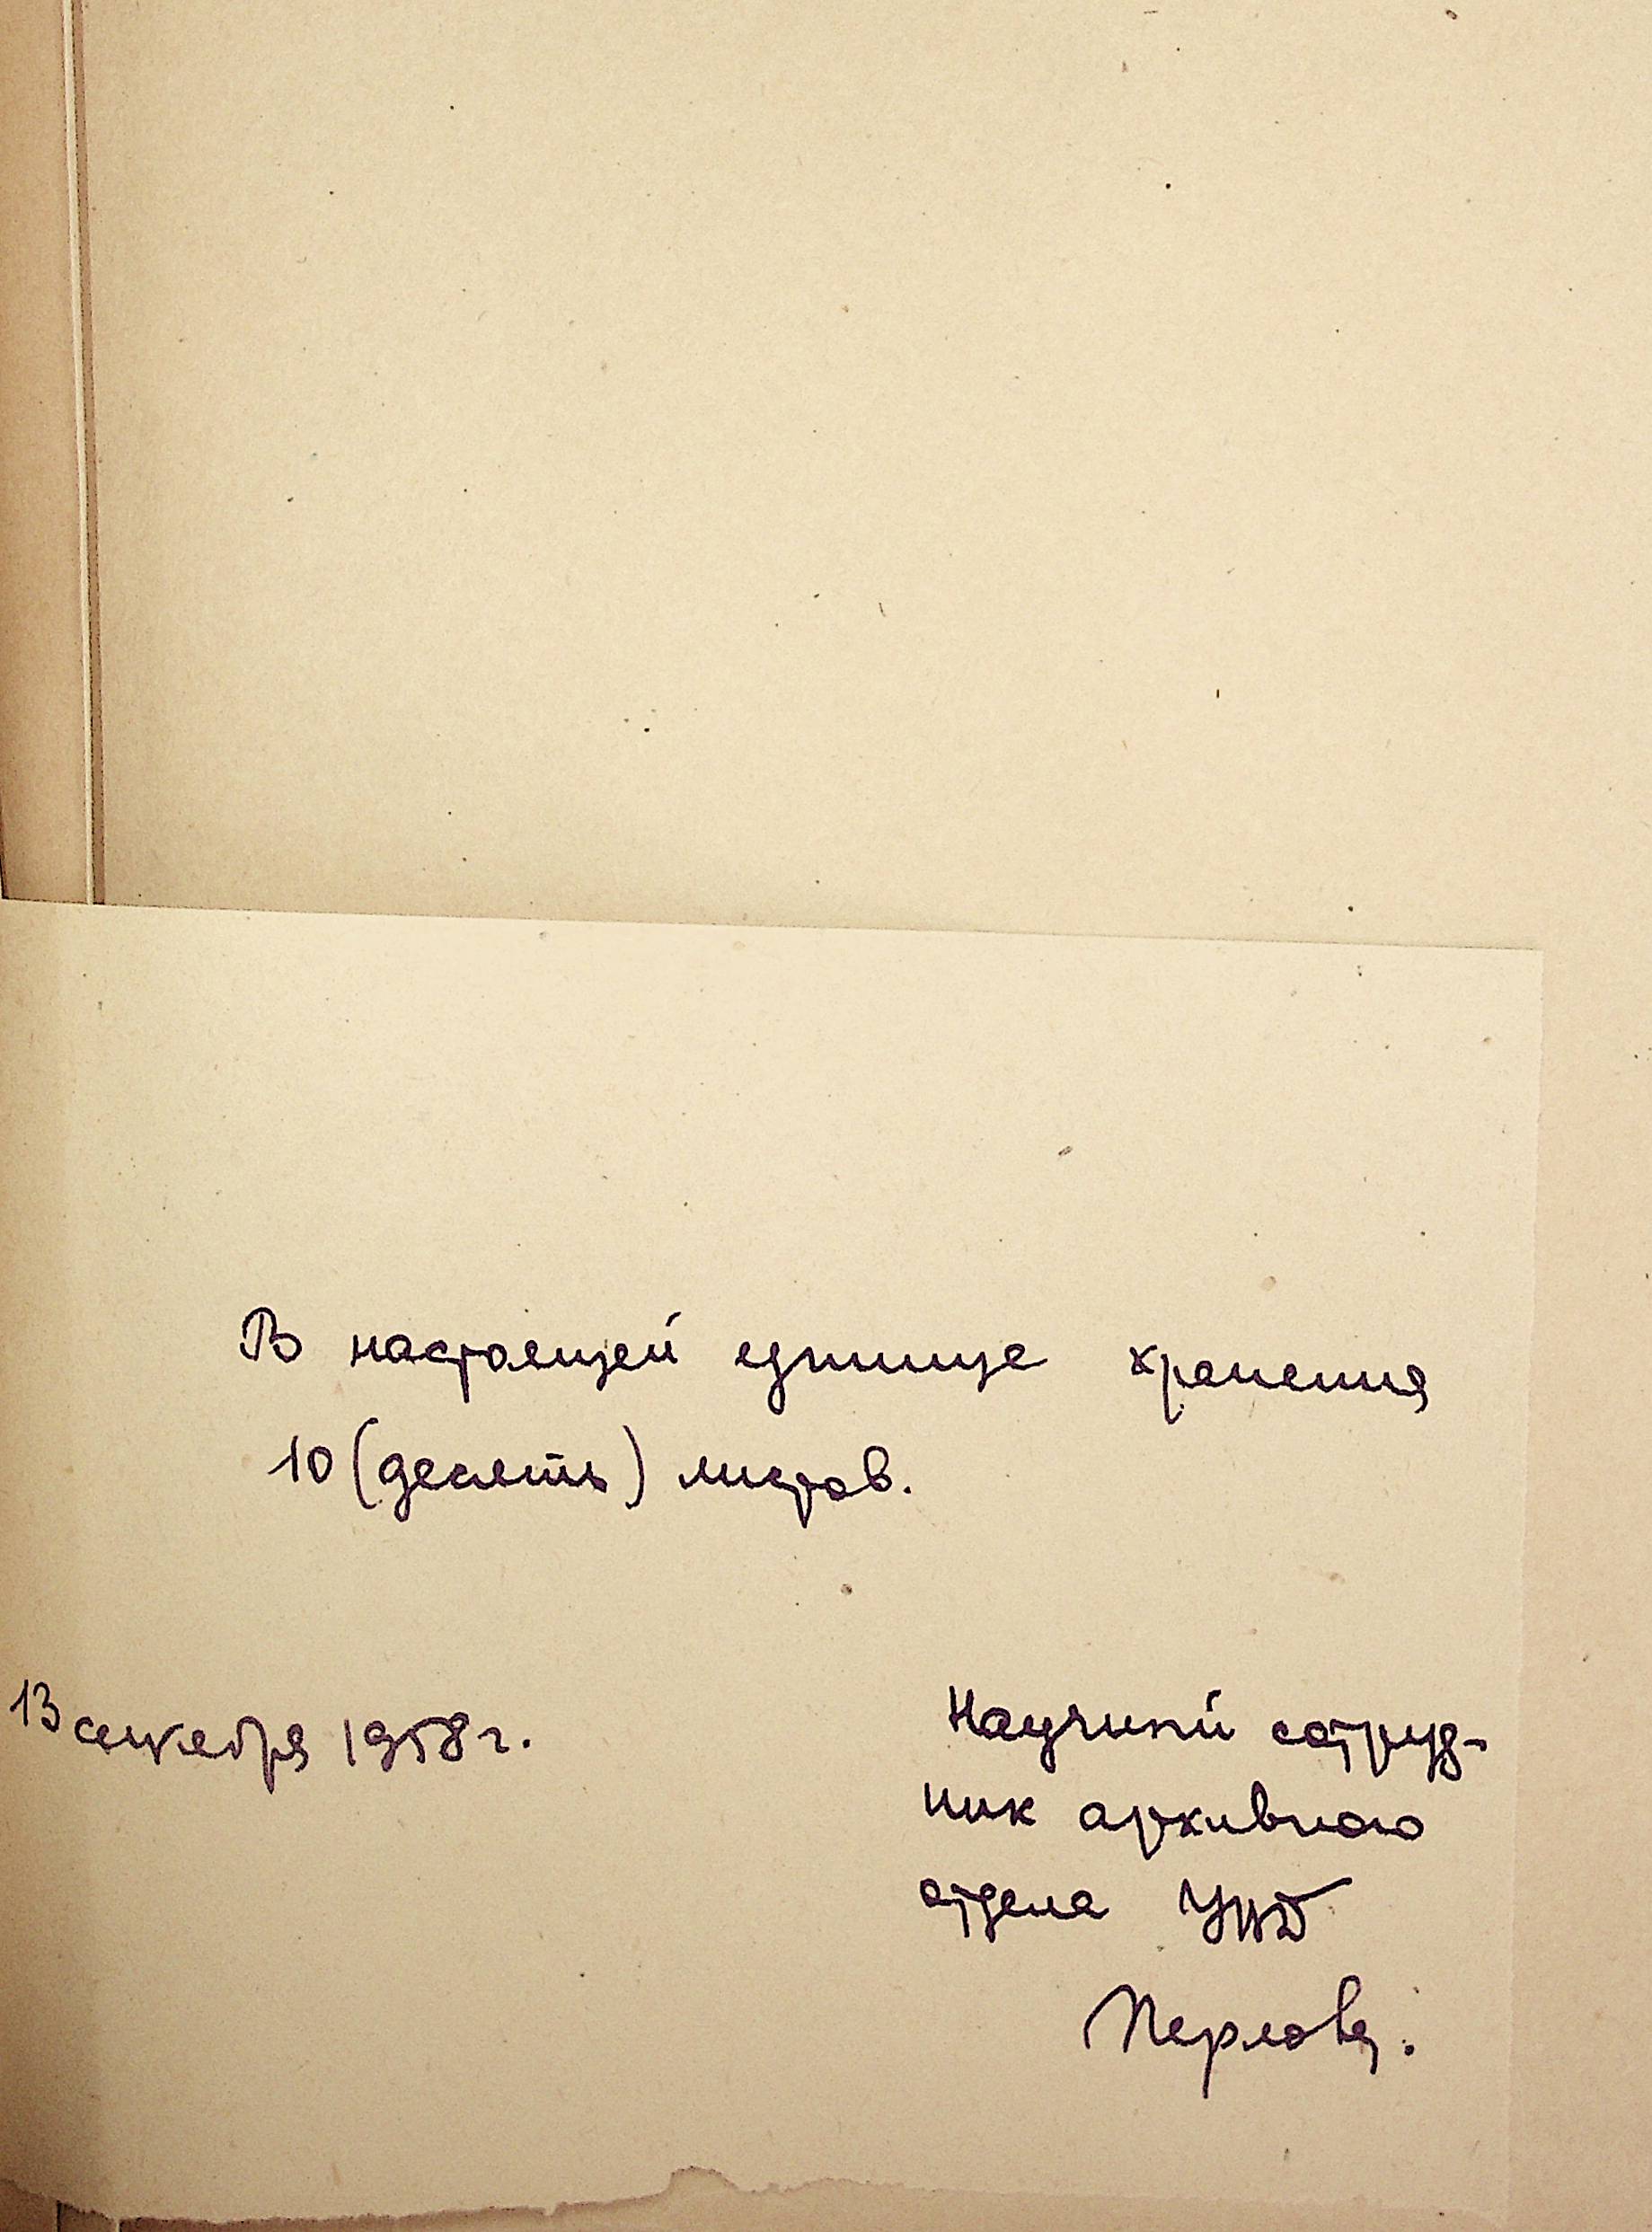 В настоящей единице хранения
10 (десять) листов.
13 сентября 1958 г.
Научный сотруд-
ник архивного
отдела УВД
Перлова.